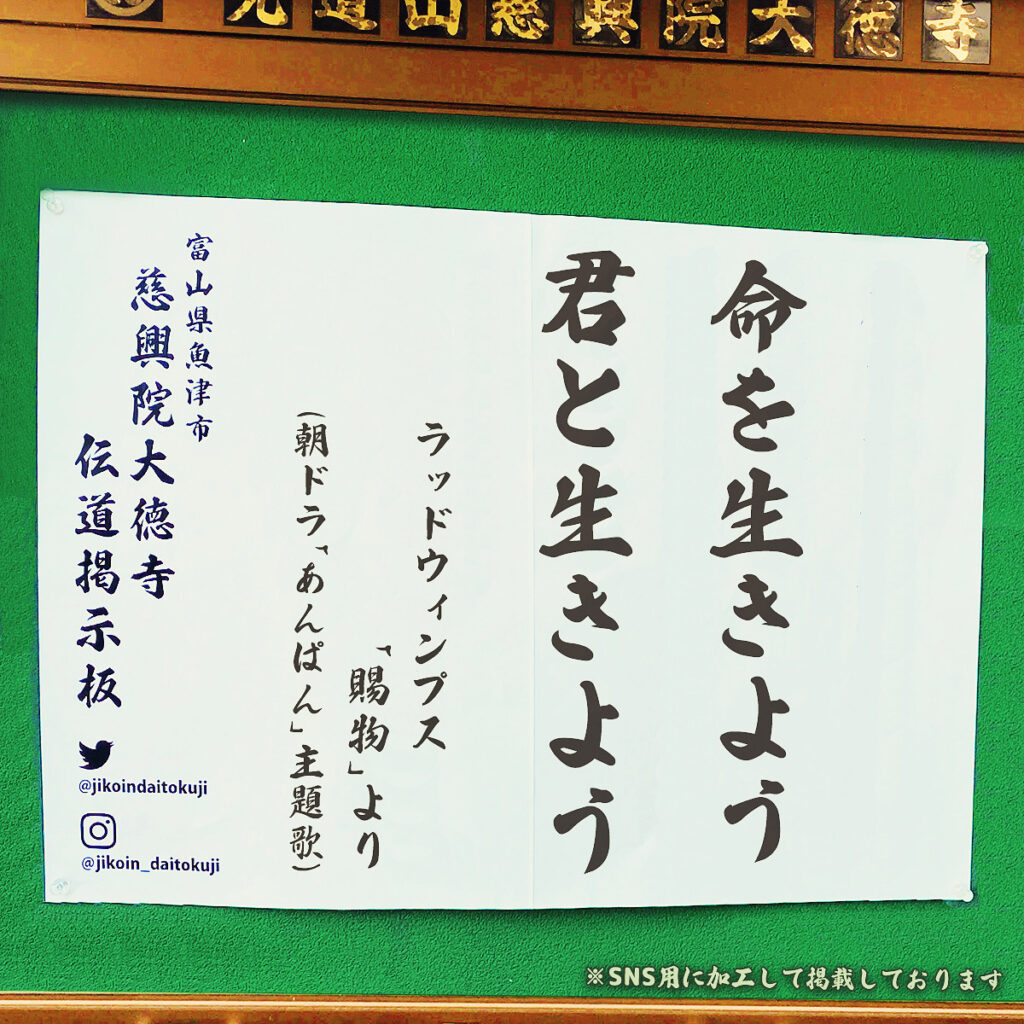 光道山慈興院大徳寺
命を生きよう
君と生きよう
ラッドウィンプス
「賜物」より
(朝ドラ「あんぱん」主題歌)
富山県魚津市
慈興院大徳寺
伝道掲示板
@jikoindaitokuji
@jikoin_daitokuji
※SNS用に加工して掲載しております